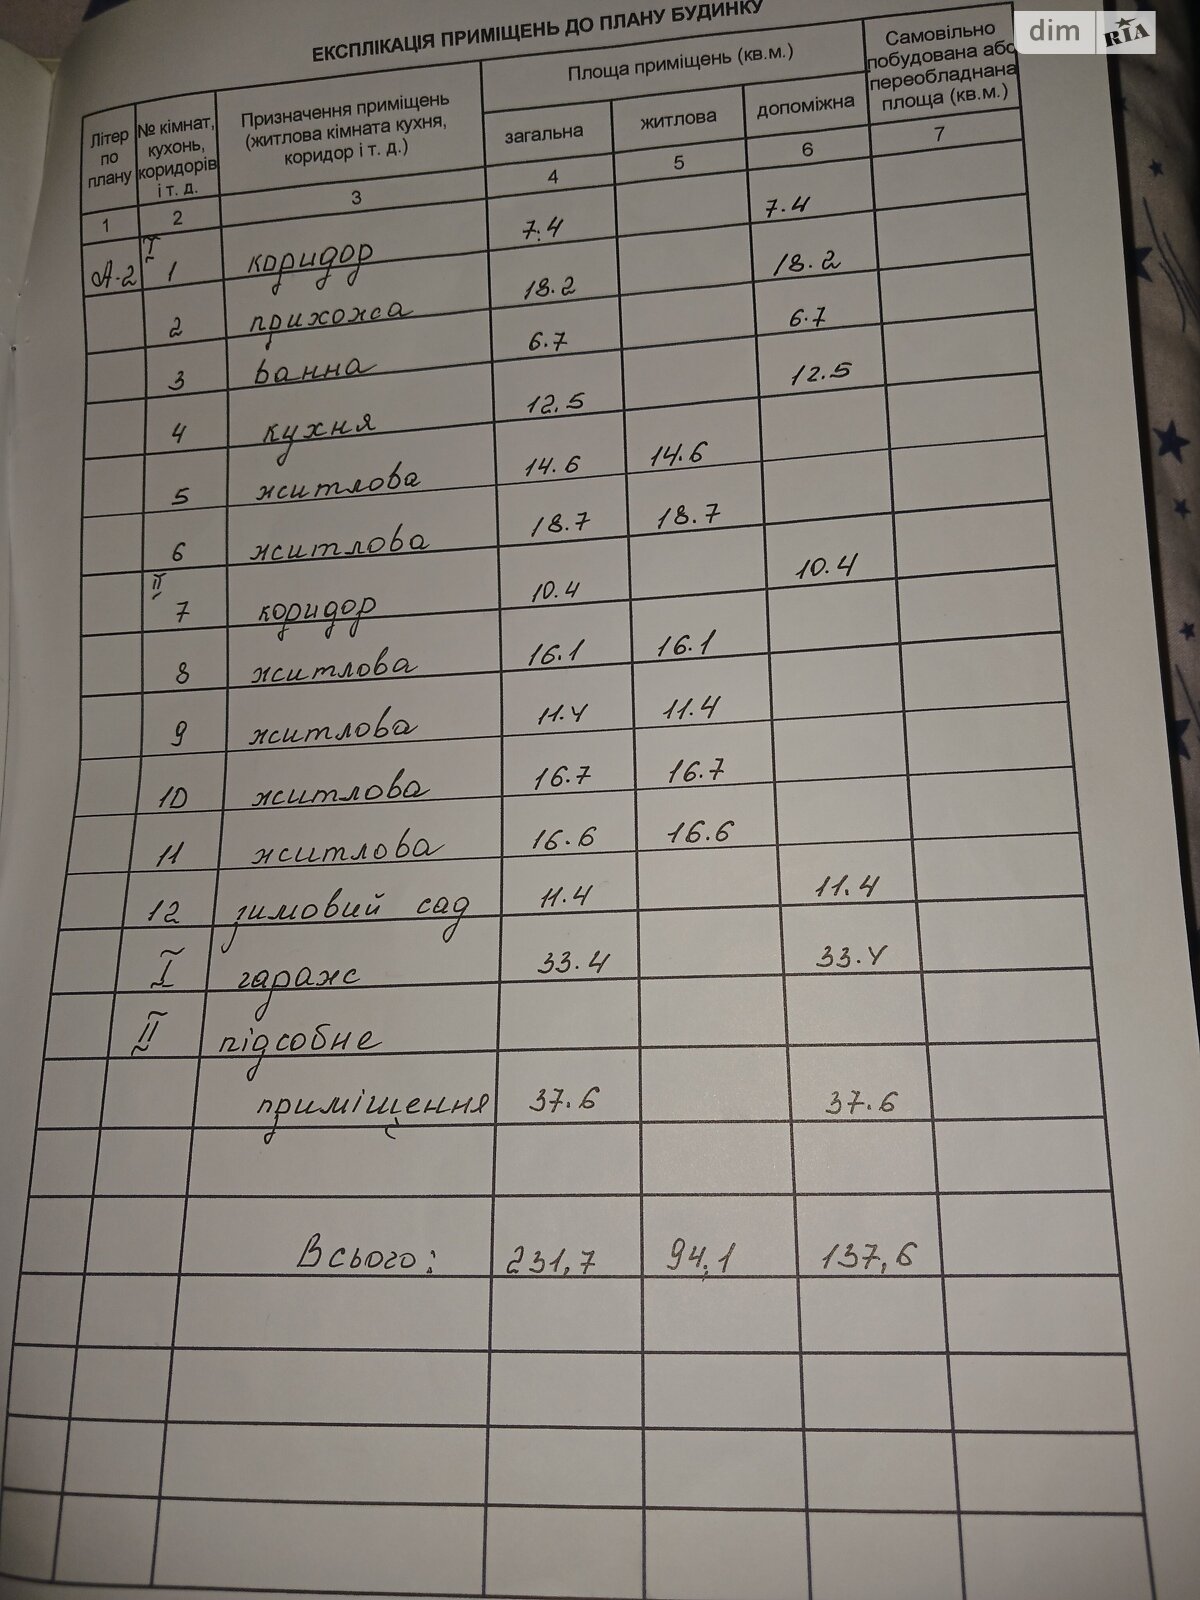 dim RIA
ЕКСПЛІКАЦІЯ ПРИМІЩЕНЬ ДО ПЛАНУ БУДИНКУ
Літер по плану | № кімнат, кухонь, коридорів і т. д. | Призначення приміщень (житлова кімната кухня, коридор і т. д.) | Площа приміщень (кв.м.) | Самовільно побудована або переобладнана площа (кв.м.)
загальна | житлова | допоміжна
1 | 2 | 3 | 4 | 5 | 6 | 7
А-2 | I 1 | коридор | 7.4 | 7.4
2 | прихожа | 18.2 | 18.2
3 | ванна | 6.7 | 6.7
4 | кухня | 12.5 | 12.5
5 | житлова | 14.6 | 14.6
6 | житлова | 18.7 | 18.7
II 7 | коридор | 10.4 | 10.4
8 | житлова | 16.1 | 16.1
9 | житлова | 11.4 | 11.4
10 | житлова | 16.7 | 16.7
11 | житлова | 16.6 | 16.6
12 | зимовий сад | 11.4 | 11.4
I | гараж | 33.4 | 33.4
II | підсобне
приміщення | 37.6 | 37.6
Всього: | 231,7 | 94,1 | 137,6